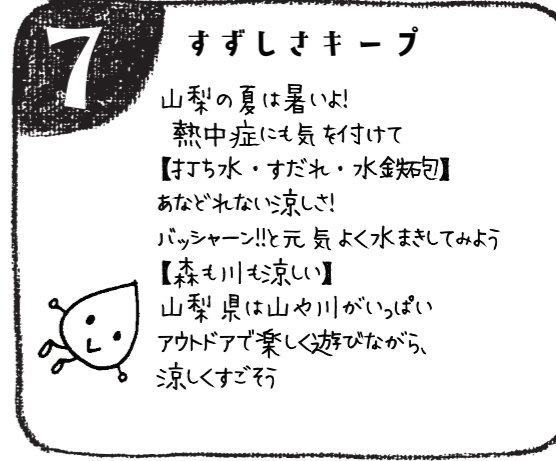 7
すずしさキープ
山梨の夏は暑いよ!
熱中症にも気を付けて
【打ち水・すだれ・水鉄砲】
あなどれない涼しさ!
バッシャーン!!と元気よく水まきしてみよう
【森も川も涼しい】
山梨県は山や川がいっぱい
アウトドアで楽しく遊びながら、
涼しくすごそう